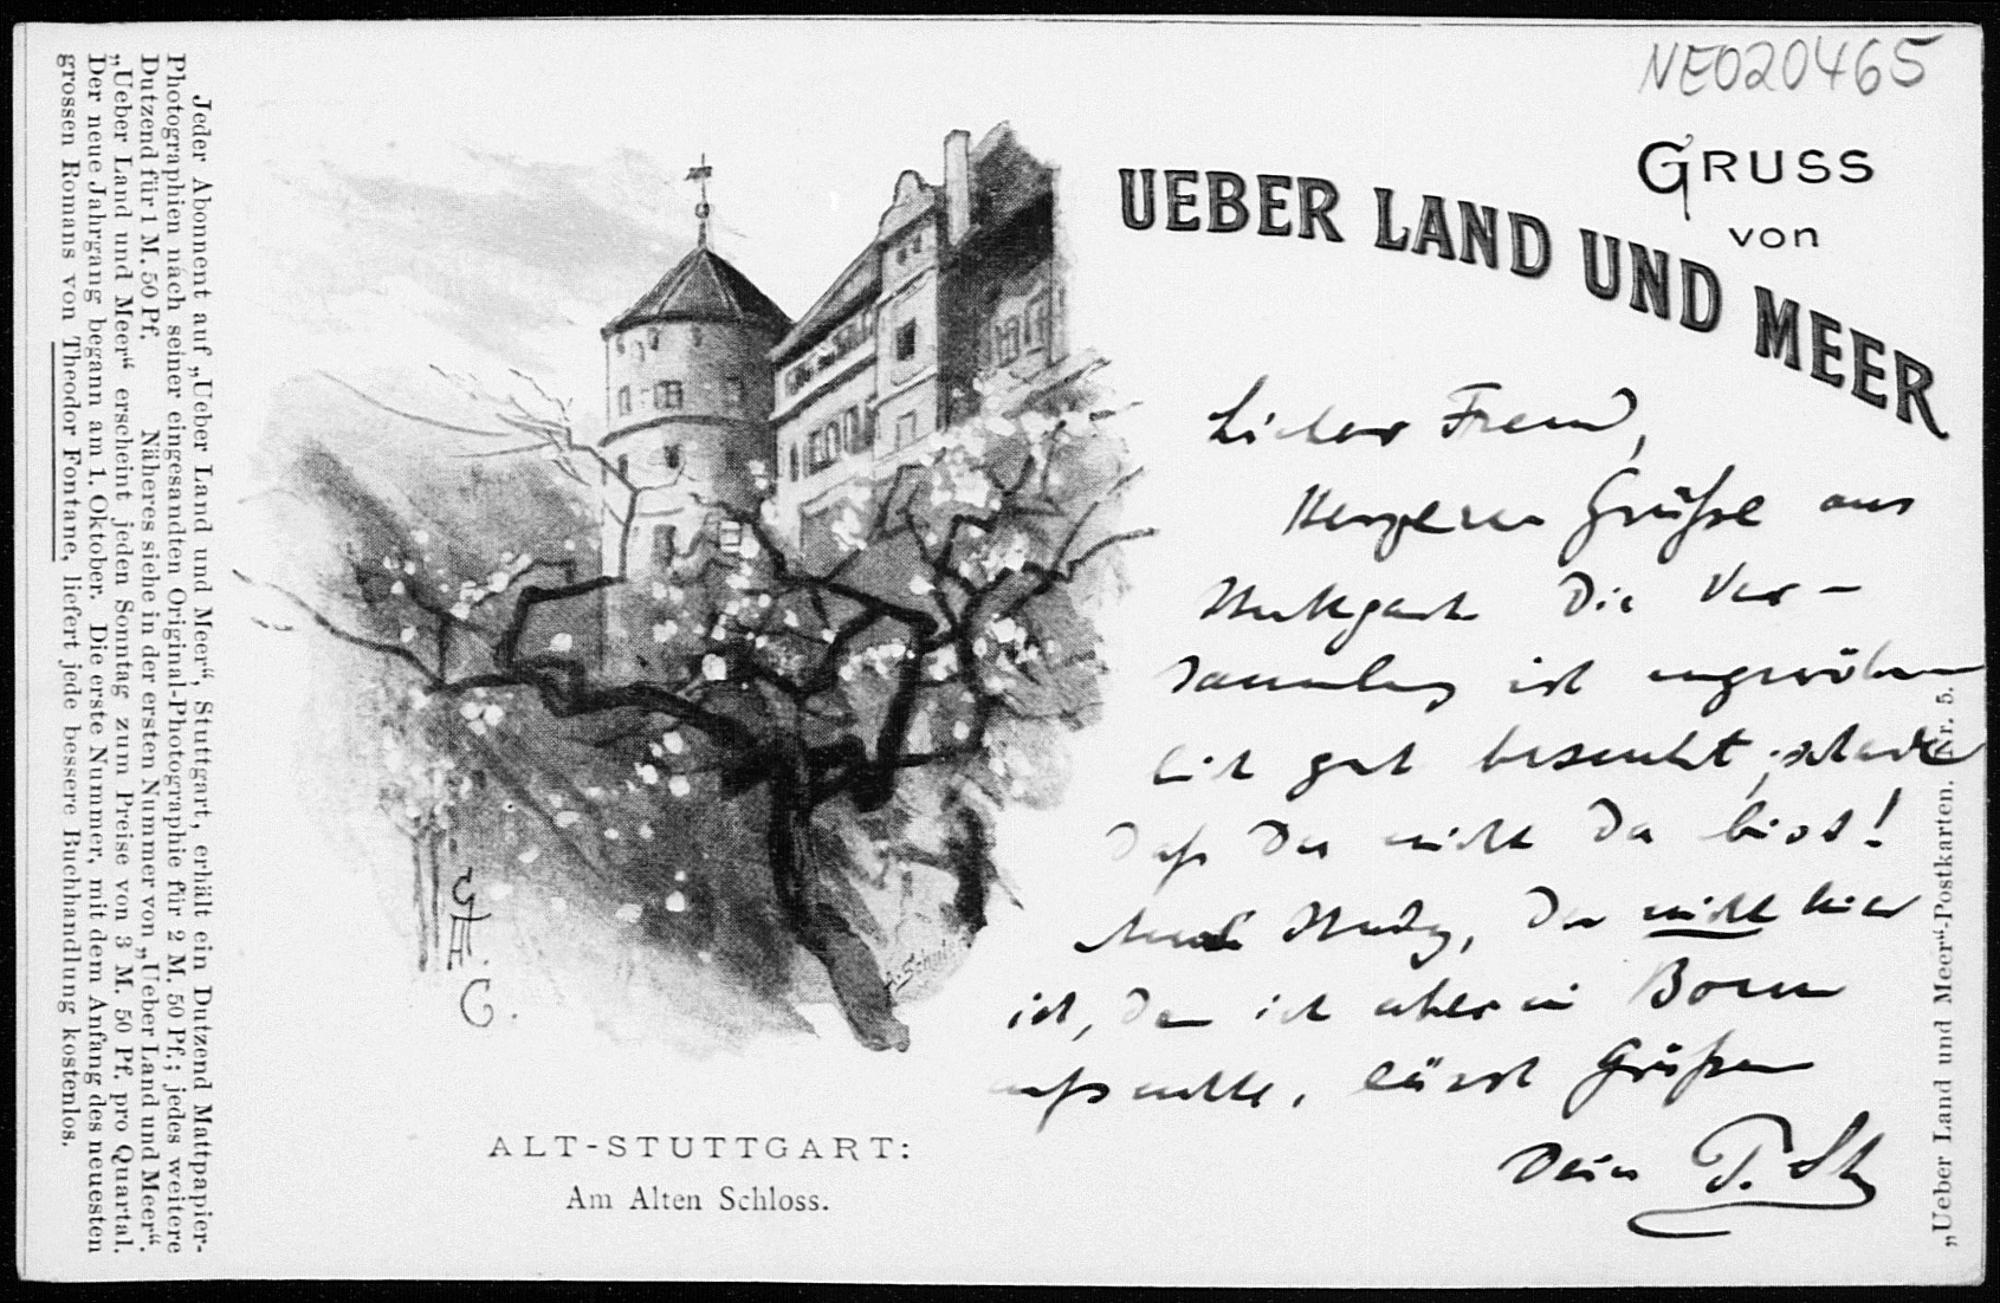 NE020465
GRUSS
von
UEBER LAND UND MEER
Lieber Freund,
Herzliche Grüße aus
Stuttgart Die Ver-
sammlung ist ungewöhn
lich gut besucht; schade
Daß Du nicht Da bist!
Study, Der nicht hier
ist, Den ich aber in Bonn
aufsuchte, lässt Grüßen
Dein P. St
ALT-STUTTGART:
Am Alten Schloss.
Jeder Abonnent auf „Ueber Land und Meer“, Stuttgart, erhält ein Dutzend Mattpapier-
Photographien nach seiner eingesandten Original-Photographie für 2 M. 50 Pf.; jedes weitere
Dutzend für 1 M. 50 Pf. Näheres siehe in der ersten Nummer von „Ueber Land und Meer“.
„Ueber Land und Meer“ erscheint jeden Sonntag zum Preise von 3 M. 50 Pf. pro Quartal.
Der neue Jahrgang begann am 1. Oktober. Die erste Nummer, mit dem Anfang des neuesten
grossen Romans von Theodor Fontane, liefert jede bessere Buchhandlung kostenlos.
„Ueber Land und Meer“-Postkarten. Nr. 5.